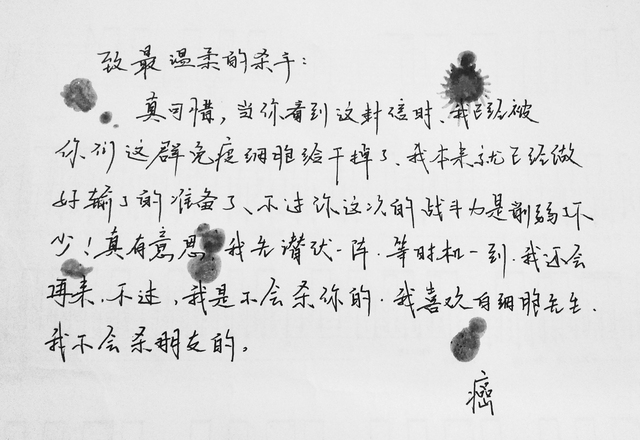 致最温柔的杀手：
真可惜，当你看到这封信时、我已经被
你们这群免疫细胞给干掉了、我本来就已经做
好输了的准备了、不过你这次的战斗力是削弱了不
少！真有意思，我先潜伏一阵．等时机一到．我还会
再来、不过，我是不会杀你的．我喜欢白细胞先生．
我不会杀朋友的。
癌